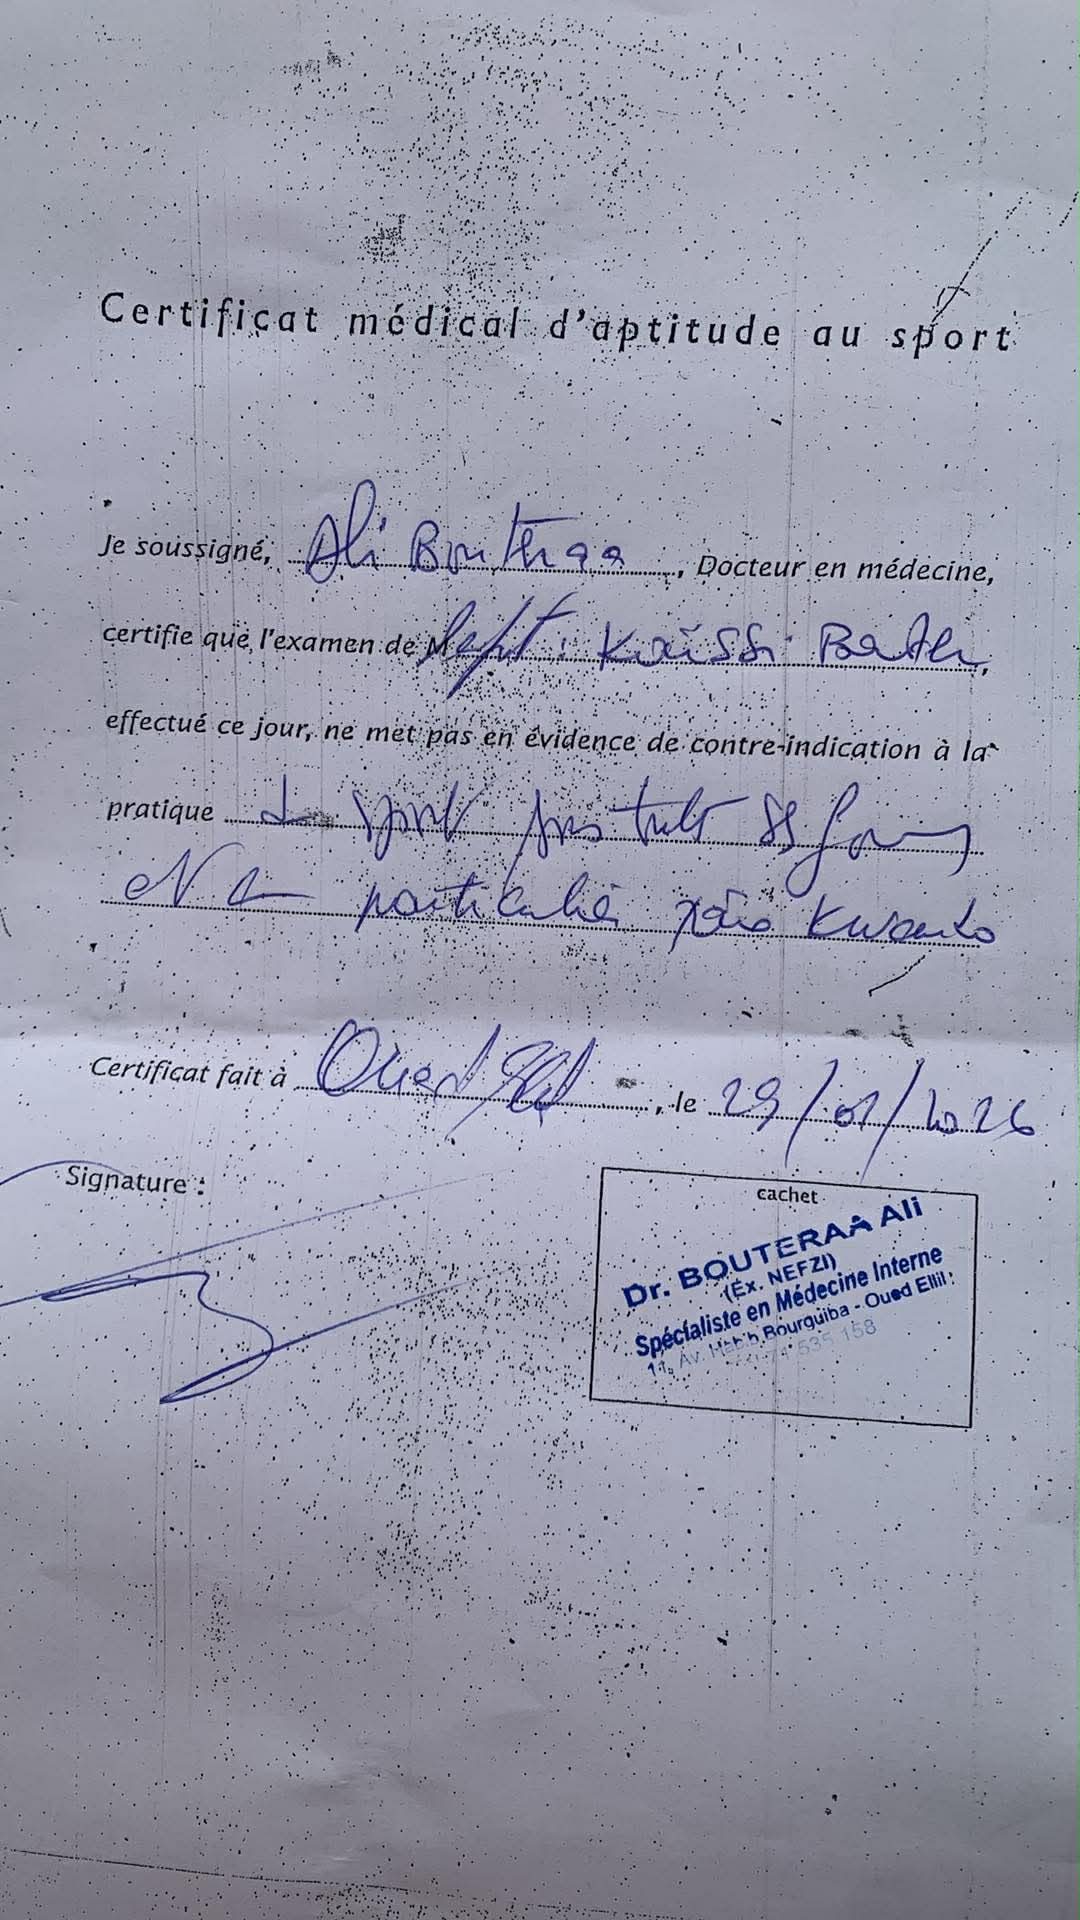 Certificat médical d'aptitude au sport
Je soussigné, Ali Bouteraa, Docteur en médecine,
certifie que l'examen de M : Kaissi
effectué ce jour, ne met pas en évidence de contre-indication à la
pratique sport ss
particulier Kwando
Certificat fait à Oued Ellil, le 29/01/2026
Signature :
cachet
Dr. BOUTERAA Ali
(Ex. NEFZI)
Spécialiste en Médecine Interne
11, Av. Habib Bourguiba - Oued Ellil
71 535 158